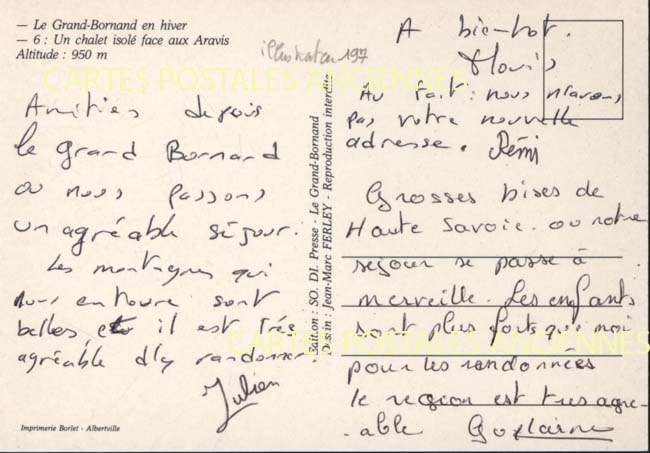 — Le Grand-Bornand en hiver
— 6 : Un chalet isolé face aux Aravis
Altitude : 950 m
CARTES POSTALES ANCIENNES
Amitiés depuis
le grand Bornand
où nous passons
un agréable séjour.
Les montagnes qui
nous entoure sont
belles et il est très
agréable d'y randonner.
Julien
Imprimerie Borlet - Albertville
Edition : SO. DI. Presse - Le Grand-Bornand
Dessin : Jean-Marc FERLEY - Reproduction interdite
A bientot.
Au fait : nous n'avons
pas votre nouvelle
adresse. Rémi
Grosses bises de
Haute Savoie. ou notre
sejour se passe à
merveille. Les enfants
sont plus forts que moi
pour les randonnées
le region est tres agré-
-able
CARTES POSTALES ANCIENNES